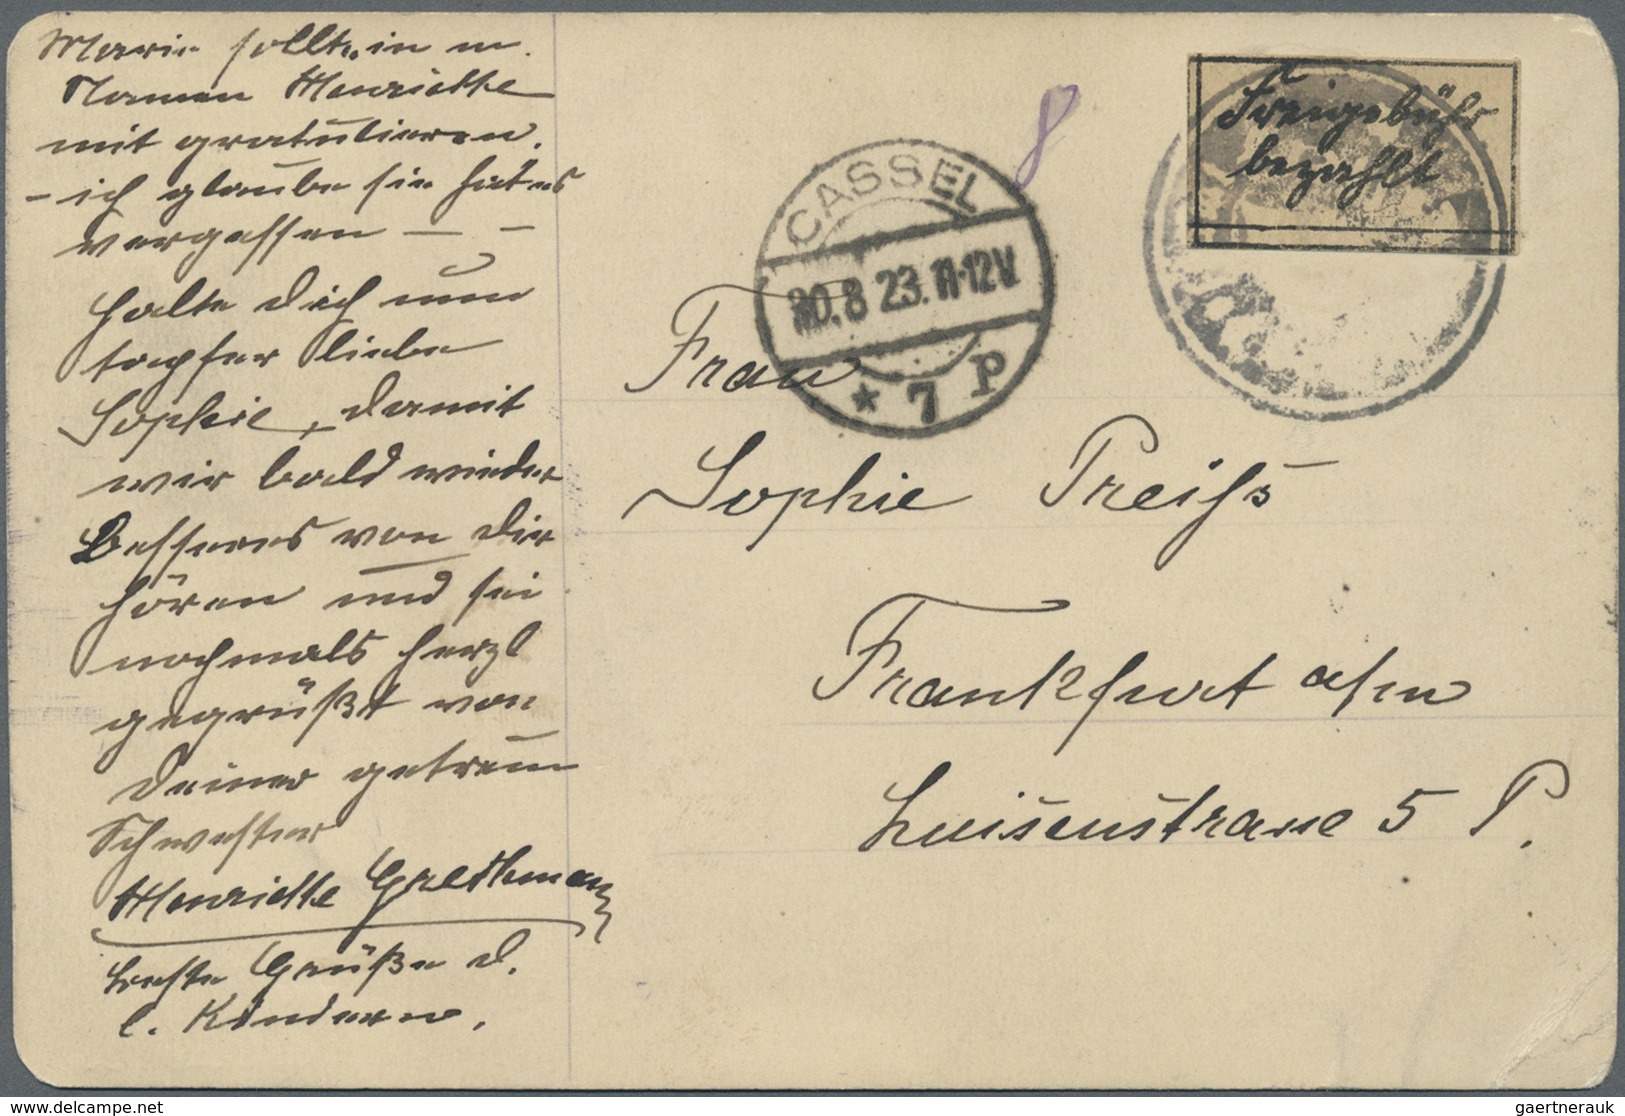 Marie sollte in m.
Namen Henriette
mit gratulieren.
– ich glaube sie hat es
vergessen — –
Halte Dich nun
tapfer liebe
Sophie, damit
wir bald wieder
Besseres von Dir
hören und sei
nochmals herzl
gegrüßt von
Deiner getreuen
Schwester
Henriette
beste Grüße d.
l. Kindern.
8
CASSEL
30.8 23. 11-12V
* 7 p
Freigebühr
bezahlt
Frau
Sophie Preiss
Frankfurt a/m
Luisenstrasse 5 P.
delcampe.net
gaertnerauk